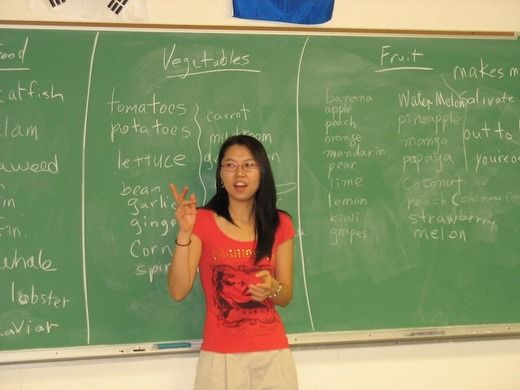 ood
atfish
lam
aweed
whale
lobster
avior
Vegetables
tomatoes
potatoes
lettuce
bean
garli
ginge
Corn
carrot
Fruit
banana
apple
peach
orange
mandarin
pear
lime
lemon
kiwi
grapes
Water Melon
pineapple
mango
papaya
Coconut
peach
strawberry
melon
makes m
alivate
out to
your